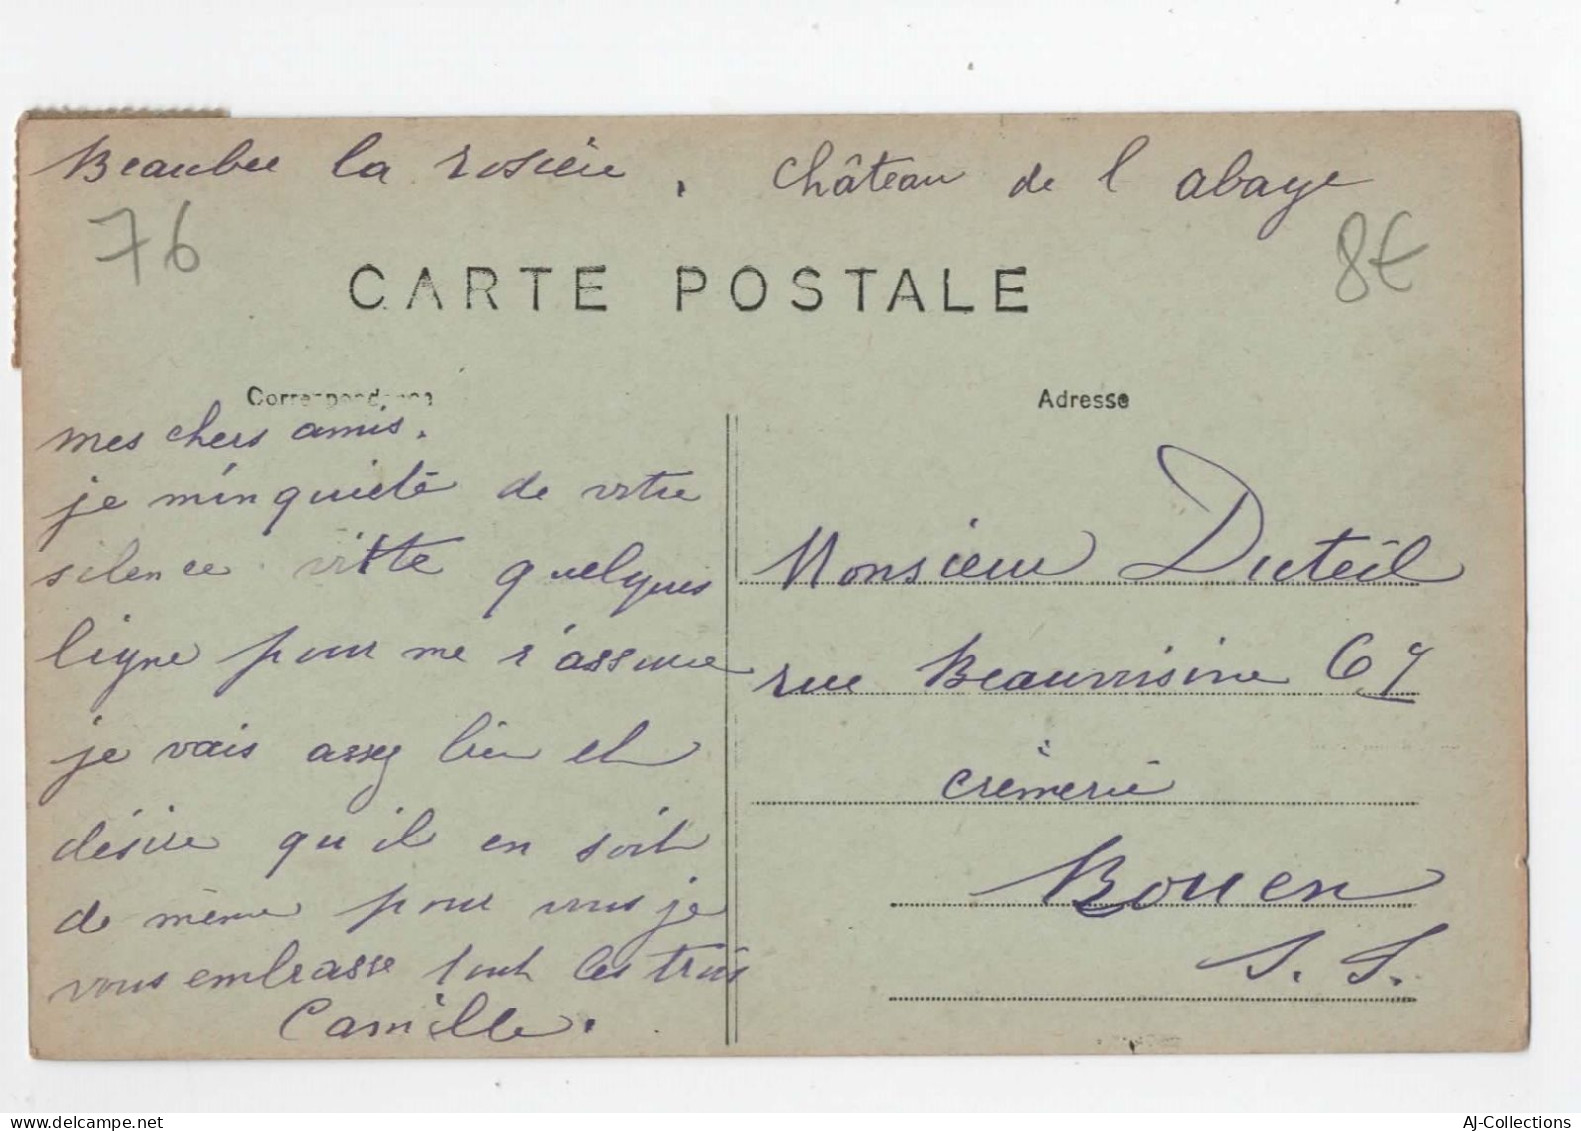 Beaubec la rosière. Château de l abaye
76
8€
CARTE POSTALE
Correspondance
Adresse
mes chers amis.
je m'inquiète de votre
silence vitte quelques
ligne pour me r'assure
je vais assez bien et
désire qu'il en soit
de même pour vous je
vous embrasse tout les trois
Camille.
Monsieur Duteil
rue Beauvoisine 67
crèmerie
Rouen
S. I.
AJ-Collections